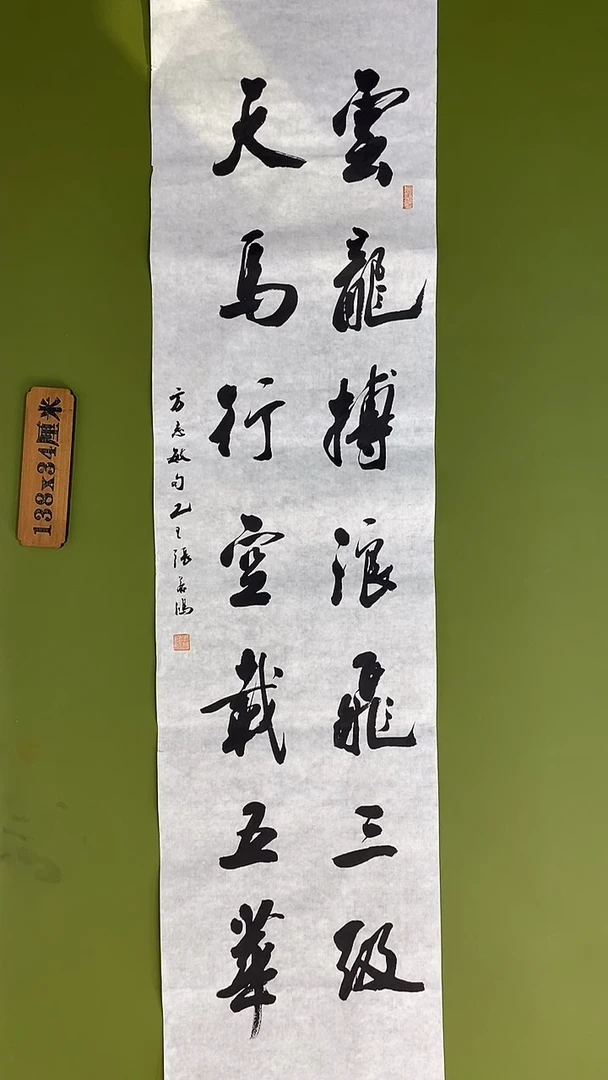 雲龍搏浪飛三級
天馬行空載五華
方志敏句乙巳張善鴻
138x34厘米